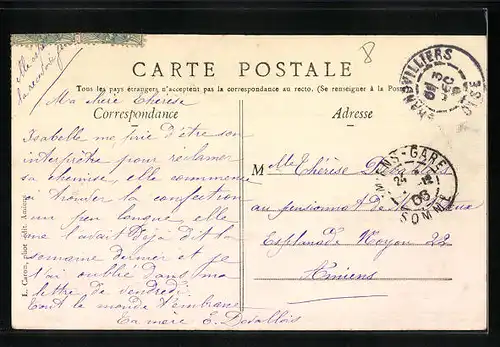 8
CARTE POSTALE
Tous les pays étrangers n'acceptent pas la correspondance au recto. (Se renseigner à la Poste
Correspondance
Adresse
Ma chère Thérèse
Isabelle me prie d'être son
interprète pour réclamer
sa chemise, elle commence
à trouver la confection
un peu longue elle
me l'avait déjà dit la
semaine dernière et je
l'ai oublié dans ma
lettre de vendredi.
Tout le monde t'embrasse
Ta mère E. Devallois
M lle Thérèse
au pensionnat de
Esplanade Noyon 22
Amiens
VILLIERS
OISE
AMIENS-GARE
24
06
SOMME
L. Caron, phot.-édit. Amiens